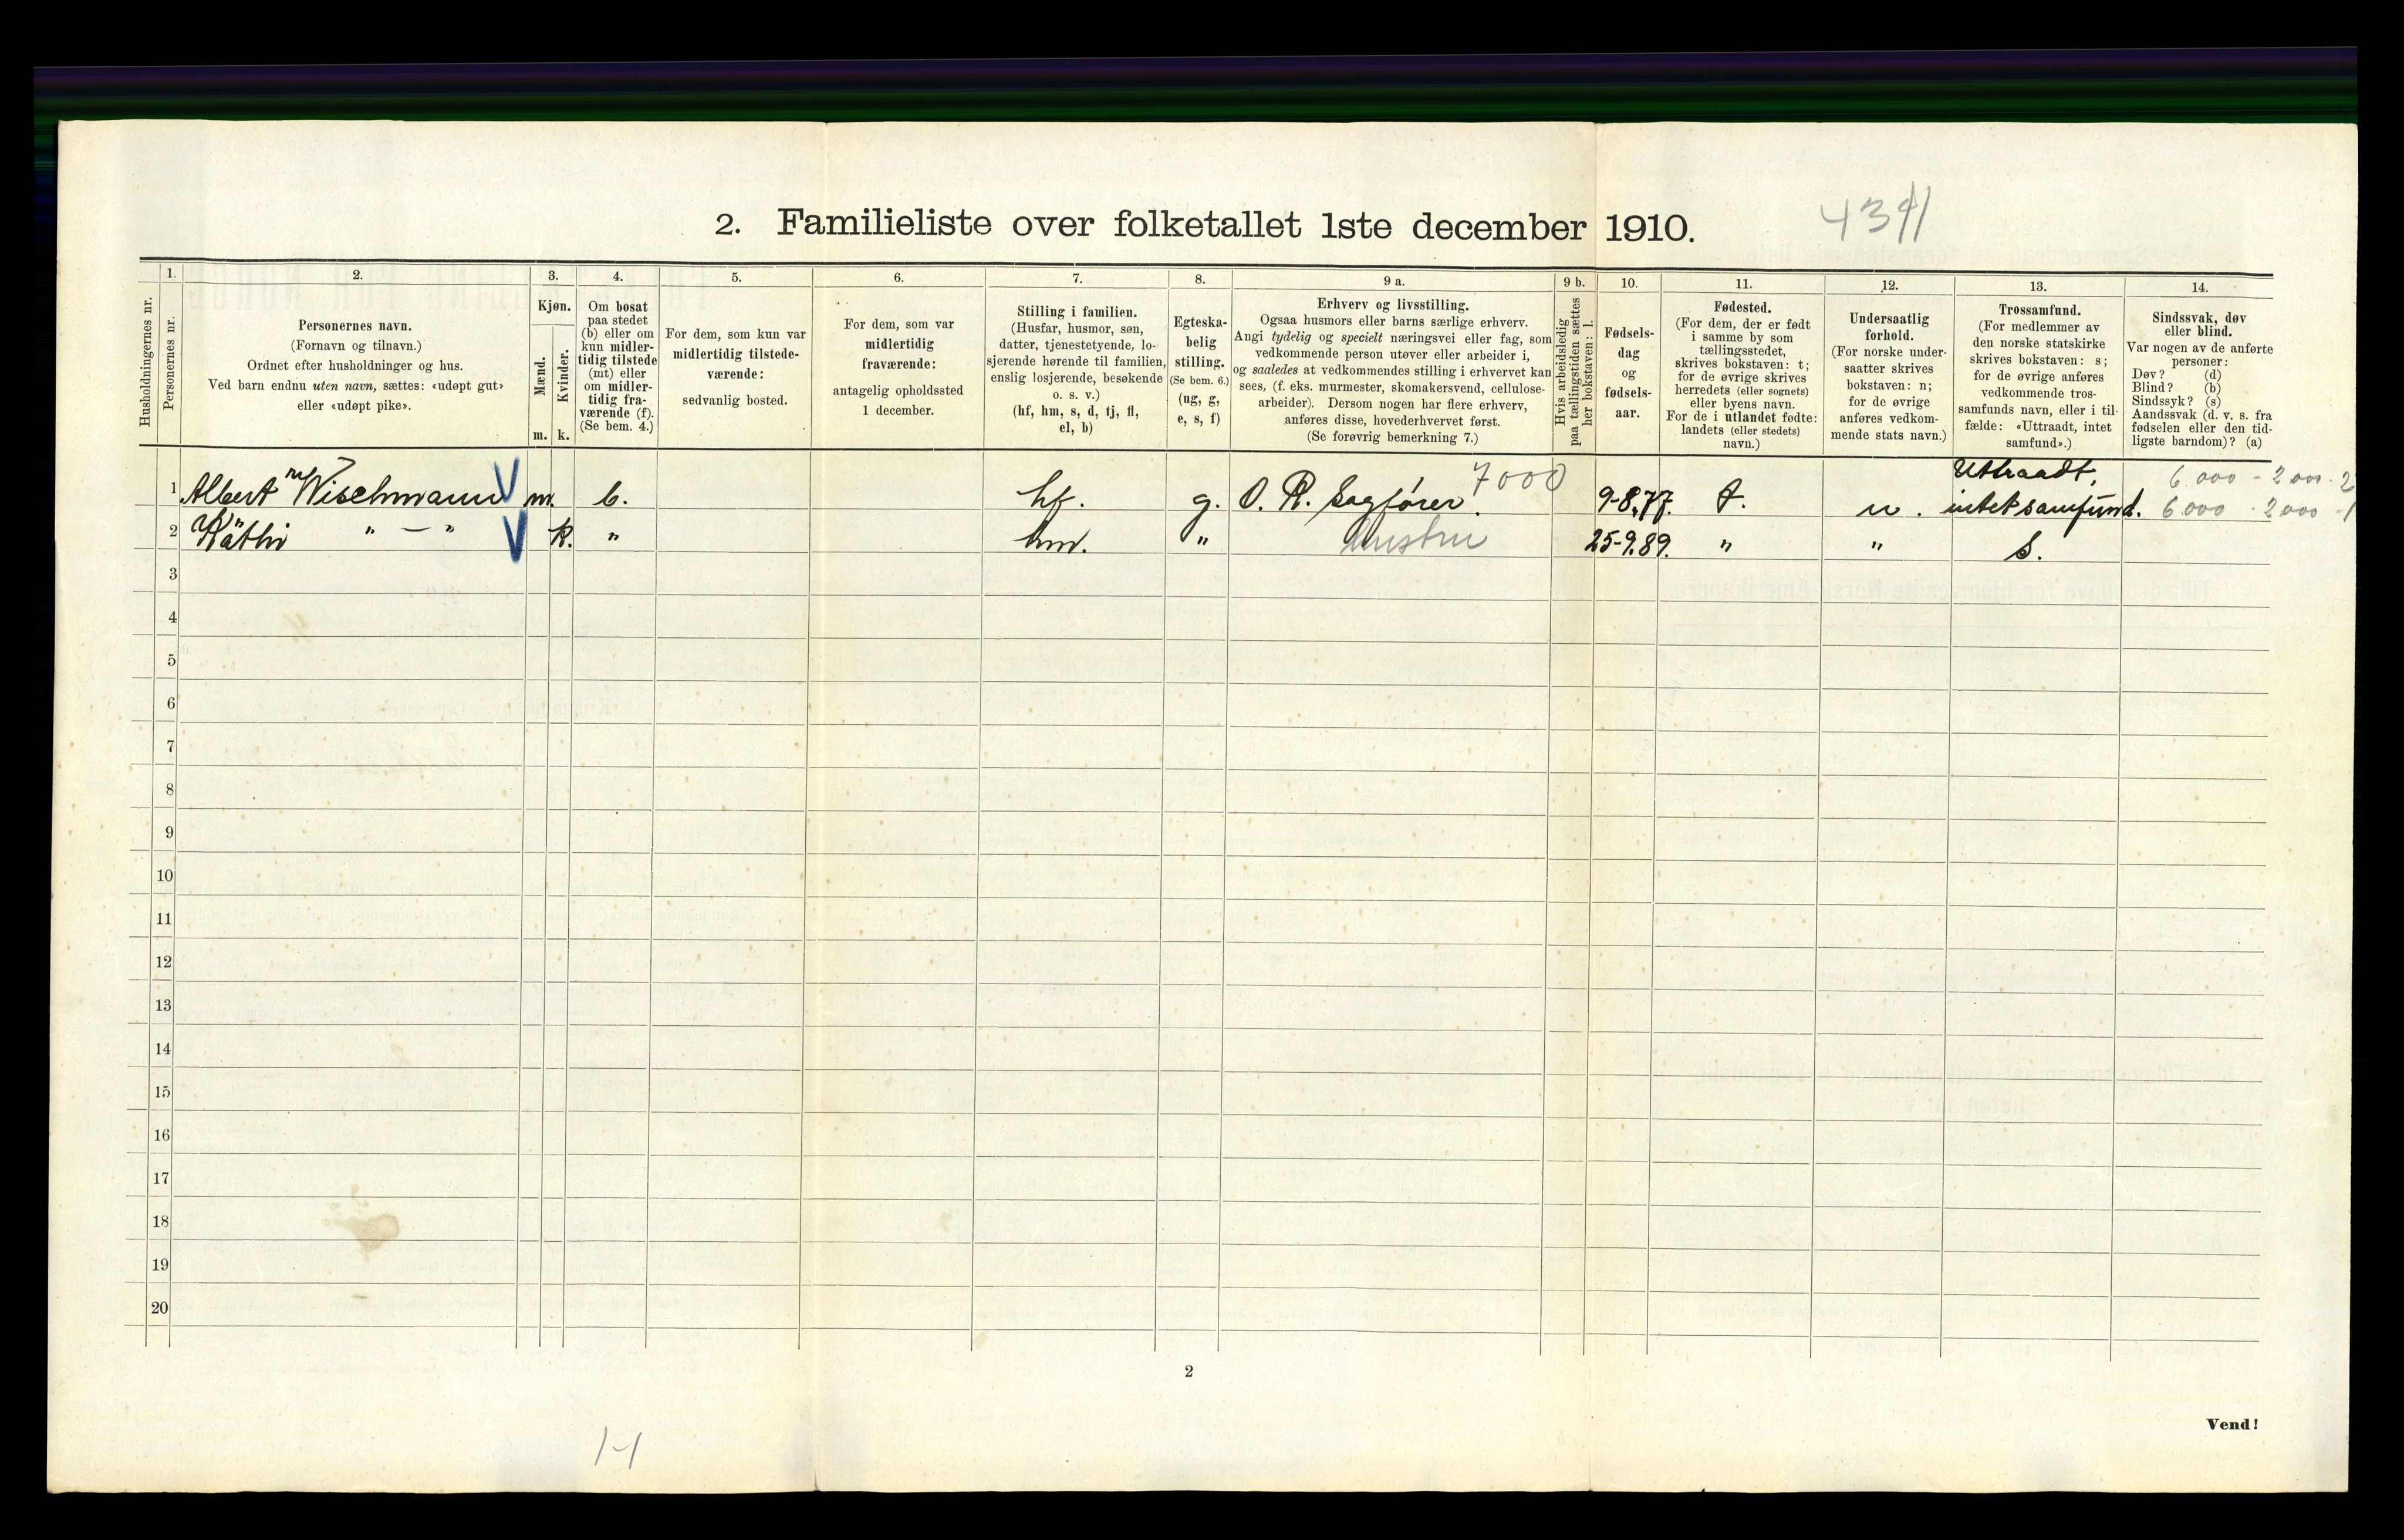 2. Familieliste over folketallet 1ste december 1910.
1. 2. 3. 4. 5. 6. 7. 8. 9 a. 9 b. 10. 11. 12. 13. 14.
Husholdningernes nr.
Personernes nr.
Personernes navn.
(Fornavn og tilnavn.)
Ordnet efter husholdninger og hus.
Ved barn endnu uten navn, sættes: «udøpt gut»
eller «udøpt pike».
Kjøn.
Mænd.
Kvinder.
m. k.
Om bosat
paa stedet
(b) eller om
kun midler-
tidig tilstede
(mt) eller
om midler-
tidig fra-
værende (f).
(Se bem. 4.)
For dem, som kun var
midlertidig tilstede-
værende:
sedvanlig bosted.
For dem, som var
midlertidig
fraværende:
antagelig opholdssted
1 december.
Stilling i familien.
(Husfar, husmor, søn,
datter, tjenestetyende, lo-
sjerende hørende til familien,
enslig losjerende, besøkende
o. s. v.)
(hf, hm, s, d, tj, fl,
el, b)
Egteska-
belig
stilling.
(Se bem. 6.)
(ug, g,
e, s, f)
Erhverv og livsstilling.
Ogsaa husmors eller barns særlige erhverv.
Angi tydelig og specielt næringsvei eller fag, som
vedkommende person utøver eller arbeider i,
og saaledes at vedkommendes stilling i erhvervet kan
sees, (f. eks. murmester, skomakersvend, cellulose-
arbeider). Dersom nogen har flere erhverv,
anføres disse, hovederhvervet først.
(Se forøvrig bemerkning 7.)
Hvis arbeidsledig
paa tællingstiden sættes
her bokstaven: l.
Fødsels-
dag
og
fødsels-
aar.
Fødested.
(For dem, der er født
i samme by som
tællingsstedet,
skrives bokstaven: t;
for de øvrige skrives
herredets (eller sognets)
eller byens navn.
For de i utlandet fødte:
landets (eller stedets)
navn.)
Undersaatlig
forhold.
(For norske under-
saatter skrives
bokstaven: n;
for de øvrige
anføres vedkom-
mende stats navn.)
Trossamfund.
(For medlemmer av
den norske statskirke
skrives bokstaven: s;
for de øvrige anføres
vedkommende tros-
samfunds navn, eller i til-
fælde: «Uttraadt, intet
samfund».)
Sindssvak, døv
eller blind.
Var nogen av de anførte
personer:
Døv? (d)
Blind? (b)
Sindssyk? (s)
Aandssvak (d. v. s. fra
fødselen eller den tid-
ligste barndom)? (a)
1 Albert Wischmann V m. b. hf. g. O. R. Sagfører. 7000 9-8.77. t. n. Uttraadt, intet samfund. 6.000 - 2000 - 2
2 Käthi " — " V k. " hm. " Hustru 25-9.89. " " s. 6.000 - 2000 - 1
3
4
5
6
7
8
9
10
11
12
13
14
15
16
17
18
19
20
2
Vend!